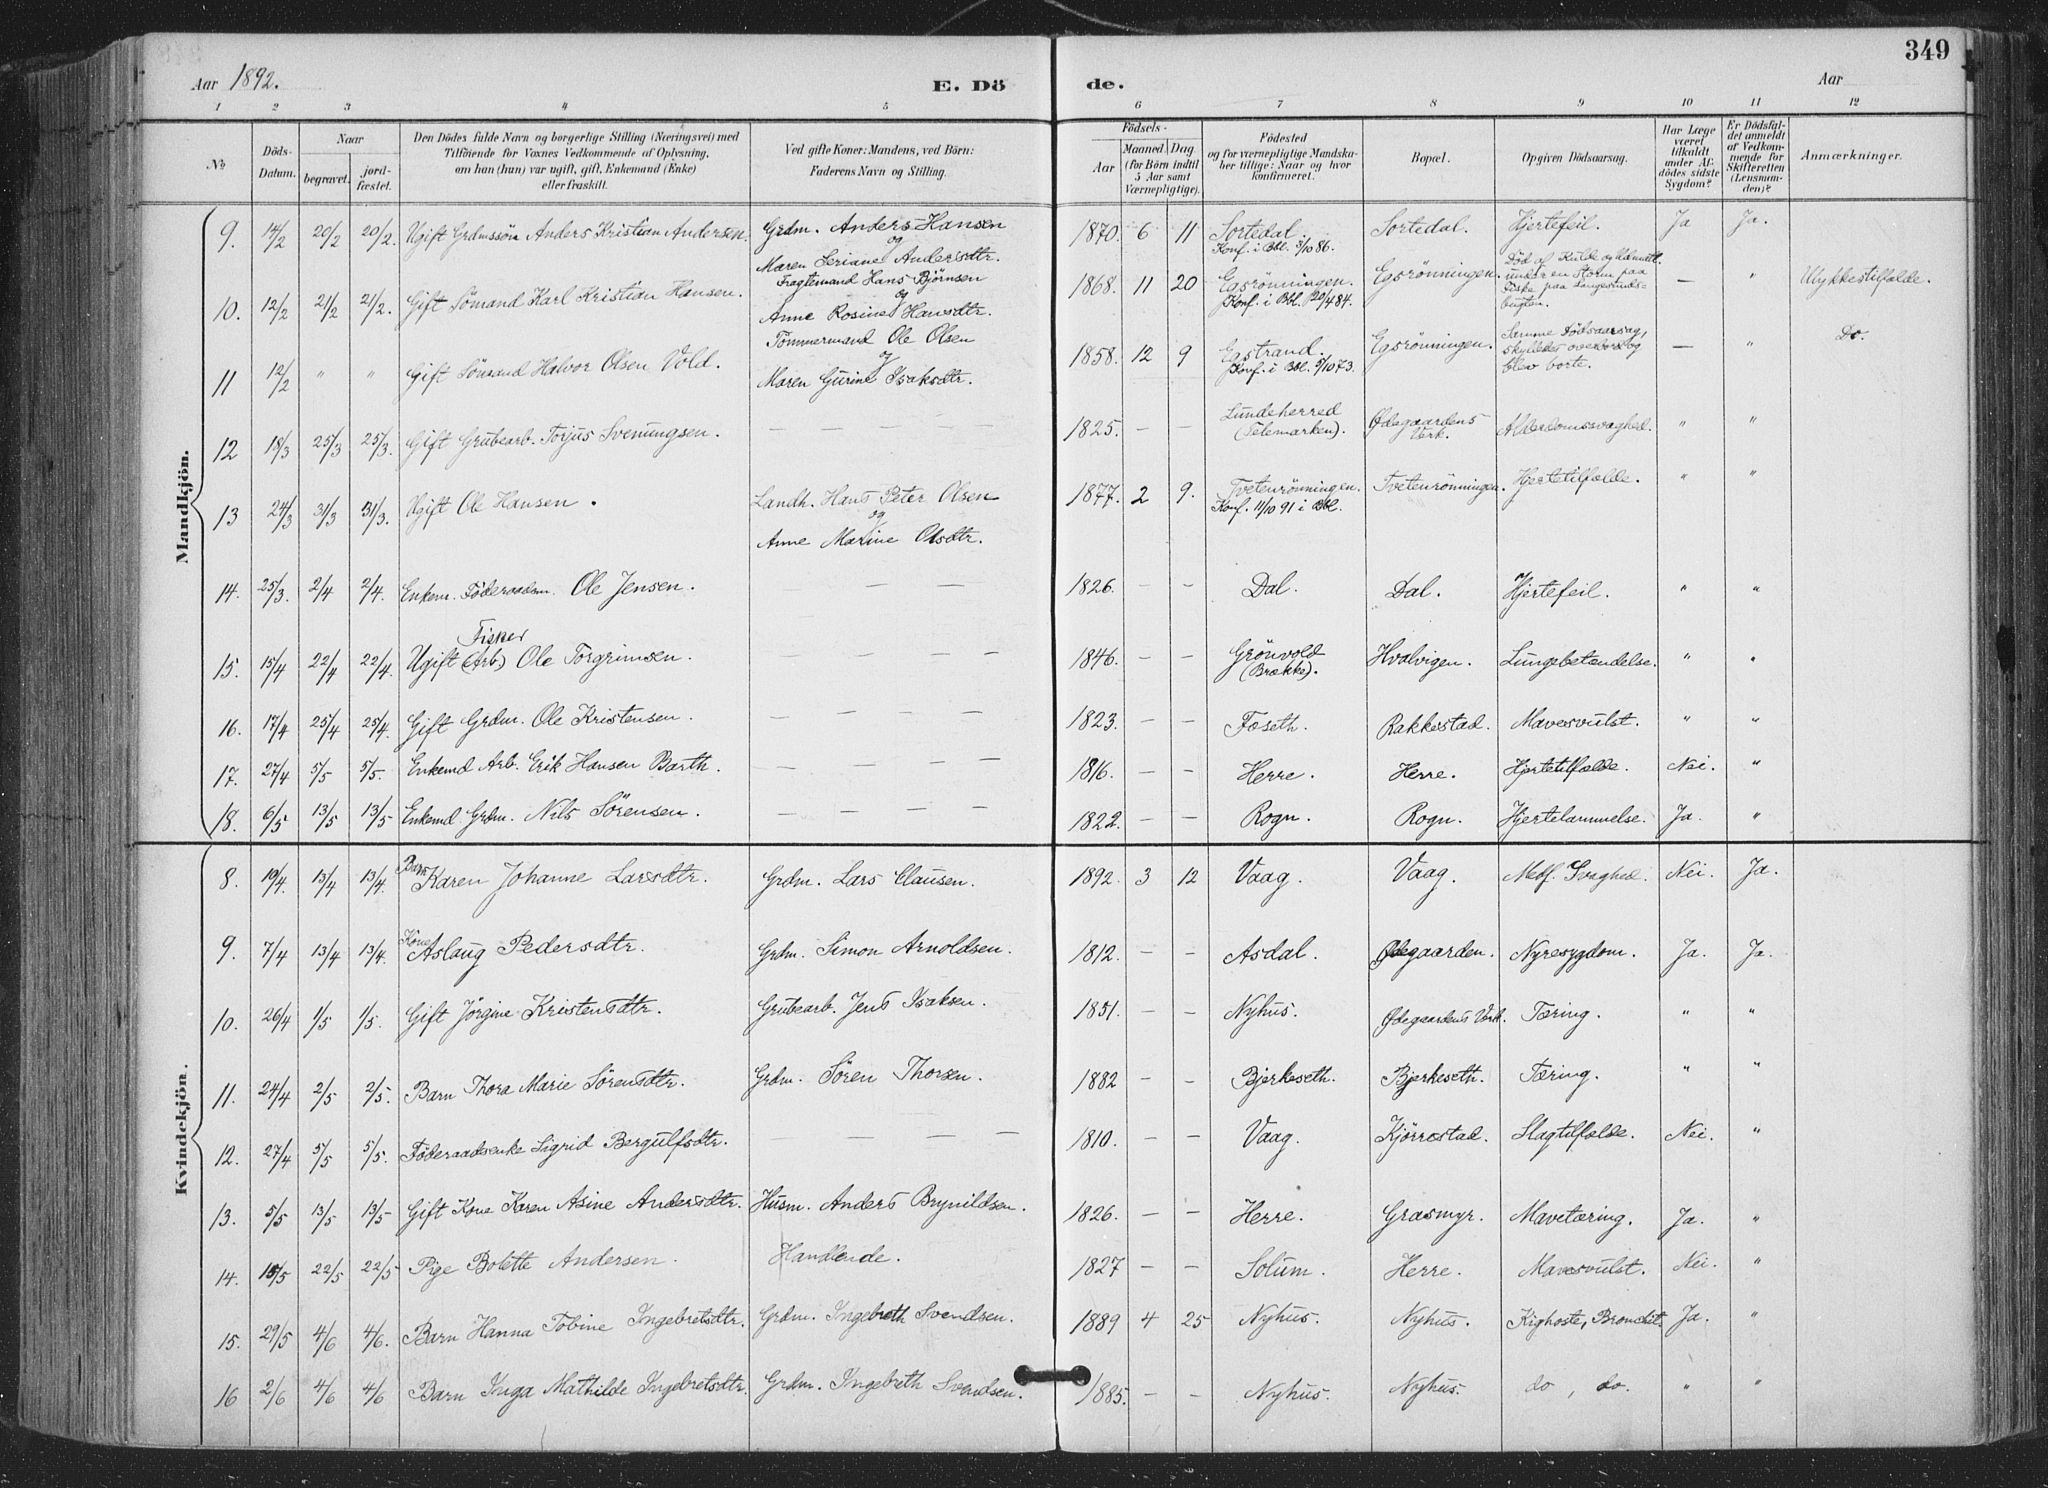 349
Aar 1892.
E. Dö
de.
Aar
1 2 3 4 5 6 7 8 9 10 11 12
No
Döds-Datum.
Naar
begravet.
jord-fæstet.
Den Dödes fulde Navn og borgerlige Stilling (Næringsvei) med
Tilföiende for Voxnes Vedkommende af Oplysning,
om han (hun) var ugift, gift, Enkemand (Enke)
eller fraskilt.
Ved gifte Koner: Mandens, ved Börn:
Faderens Navn og Stilling.
Födsels-
Aar
Maaned
Dag
(for Börn indtil
5 Aar samt
Værnepligtige).
Födested
og for værnepligtige Mandska-
ber tillige: Naar og hvor
konfirmeret.
Bopæl.
Opgiven Dödsaarsag.
Har Læge
været
tilkaldt
under Af-
dödes sidste
Sygdom?
Er Dödsfal-
det anmeldt
af Vedkom-
mende for
Skifteretten
(Lensman-
den)?
Anmærkninger.
Mandkjön.
9. 14/2 20/2 20/2. Ugift Grdmssøn Anders Kristian Andersen. Grdm. Anders Hansen og Maren Seriane Andersdtr. 1870. 6 11 Sortedal. Konf. i Bbl. 3/10 86. Sortedal. Hjertefeil. Ja Ja.
10. 12/2 21/2 21/2. Gift Sömand Karl Kristian Hansen. Fragtemand Hans Bjørnsen og Anne Rosine Hansdtr. 1868. 11 20 Egsrönningen. Konf. i Bbl. 20/4 84. Egsrönningen. Död af Kulde og Udmatt. under en Storm paa Fiske paa Langesunds-bugten. — " Ulykkestilfælde.
11 12/2 " " Gift Sömand Halvor Olsen Vold. Tömmermand Ole Olsen og Maren Gurine Isaksdtr. 1858. 12 9 Egstrand. Konf. i Bbl. 5/10 73. Egsrönningen. Samme Dödsaarsag, skylledes overbord og blev borte. — " Do.
12 18/3 25/3 25/3. Gift Grubearb. Torjus Svenungsen. — — — — 1825. — — Lundeherred (Telemarken). Ødegaardens Verk. Alderdomssvaghed. " "
13 24/3 31/3 31/3. Ugift Ole Hansen. Landh. Hans Peter Olsen og Anne Marine Olsdtr. 1877. 2 9. Tvetenrönningen. Konf. 11/10 91 i Bbl. Tvetenrönningen. Hjertetilfælde. " "
14. 25/3. 2/4 2/4. Enkem. Föderaadsm. Ole Jensen. — — — 1826. — — Dal. Dal. Hjertefeil. " "
15. 15/4 22/4 22/4. Ugift (Arb) Fisker Ole Torgrimsen. — — — — 1846. — — Grönvold (Brække). Hvalvigen. Lungebetændelse. " "
16. 17/4 25/4 25/4. Gift Grdm. Ole Kristensen. — — — — 1823. — — Foseth. Rakkestad. Mavesvulst. " "
17. 27/4 5/5 5/5. Enkemd Arb. Erik Hansen Barth. — — — — 1816. — — Herre. Herre. Hjertetilfælde. Nei. "
18. 6/5 13/5 13/5 Enkemd. Grdm. Nils Sörensen. — — — — 1822. — — Rogn. Rogn. Hjertelammelse. Ja. "
Kvindekjön.
8. 10/4. 13/4 13/4. Barn Karen Johanne Larsdtr. Grdm. Lars Clausen. 1892. 3 12 Vaag. Vaag. Medf. Svaghed. Nei. Ja.
9. 7/4 13/4 13/4. Kone Aslaug Pedersdtr. Grdm. Simon Arnoldsen. 1812. — — Asdal. Ødegaarden. Nyresygdom. Ja. Ja.
10. 26/4 1/5 1/5. Gift Jörgine Kristensdtr. Grubearb. Jens Isaksen. 1851. — — Nyhus. Ødegaardens Verk. Tæring. " "
11. 24/4 2/5 2/5. Barn Thora Marie Sörensdtr. Grdm. Sören Thorsen. 1882 — — Bjerkeseth. Bjerkeseth. Tæring. " "
12. 27/4 5/5 5/5. Föderaadsenke Sigrid Bergulfsdtr. — — — — 1810. — — Vaag. Kjörrestad. Slagtilfælde. Nei. "
13. 5/5 13/5 13/5 Gift Kone Karen Asine Andersdtr. Husm. Anders Brynildsen. 1826. — — Herre. Grasmyr. Mavetæring. Ja. "
14. 15/5 22/5 22/5 Pige Bolette Andersen. Handlende. 1827 — — Solum. Herre. Mavesvulst. Nei. "
15. 29/5 4/6 4/6. Barn Hanna Tobine Ingebretsdtr. Grdm. Ingebreth Svendsen. 1889 4 25 Nyhus. Nyhus. Kighoste, Bronchit. Ja. "
16 2/6 4/6 4/6 Barn Inga Mathilde Ingebretsdtr. Grdm. Ingebreth Svendsen. 1885. — — Nyhus. Nyhus. do, do. " "